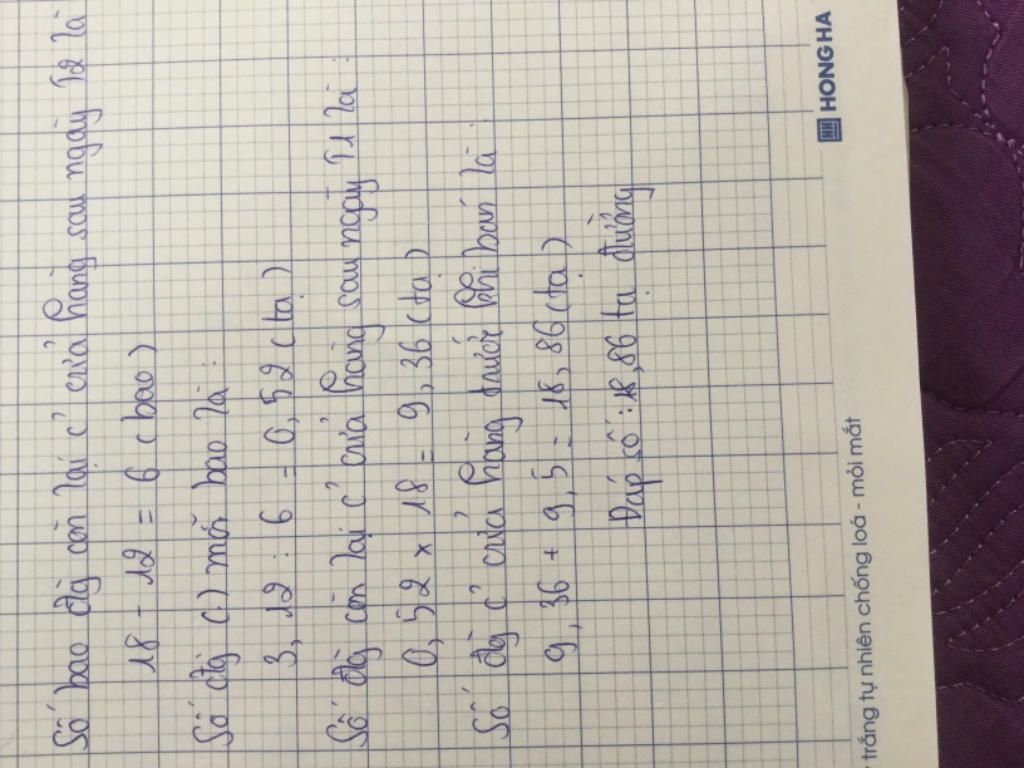 Số bao đg còn lại c' cửa hàng sau ngày T2 là
18 - 12 = 6 (bao)
Số đg c) mỗi bao là :
3,12 : 6 = 0,52 (tạ)
Số đg còn lại c' cửa hàng sau ngày T1 là :
0,52 x 18 = 9,36 (tạ)
Số đg c' cửa hàng trước khi bán là :
9,36 + 9,5 = 18,86 (tạ)
Đáp số : 18,86 tạ đường
HONG HA
trắng tự nhiên chống loá - mỏi mắt